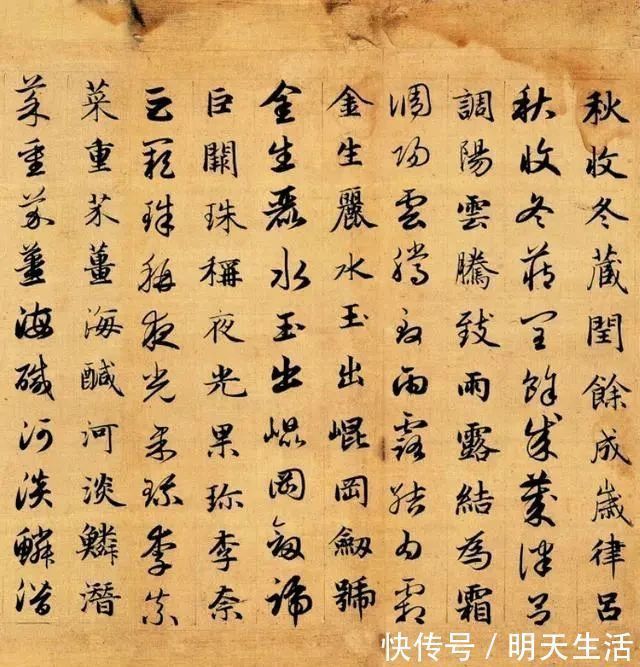 秋收冬藏閏餘成嵗律呂
秋收冬藏閏餘成歲律呂
調陽雲騰致雨露結為霜
調陽雲騰致雨露結為霜
金生麗水玉出崐岡劔號
金生麗水玉出崐岡劔號
巨闕珠稱夜光果珎李柰
巨闕珠稱夜光果珎李柰
菜重芥薑海鹹河淡鱗潛
菜重芥薑海鹹河淡鱗潛
快传号 / 明天生活